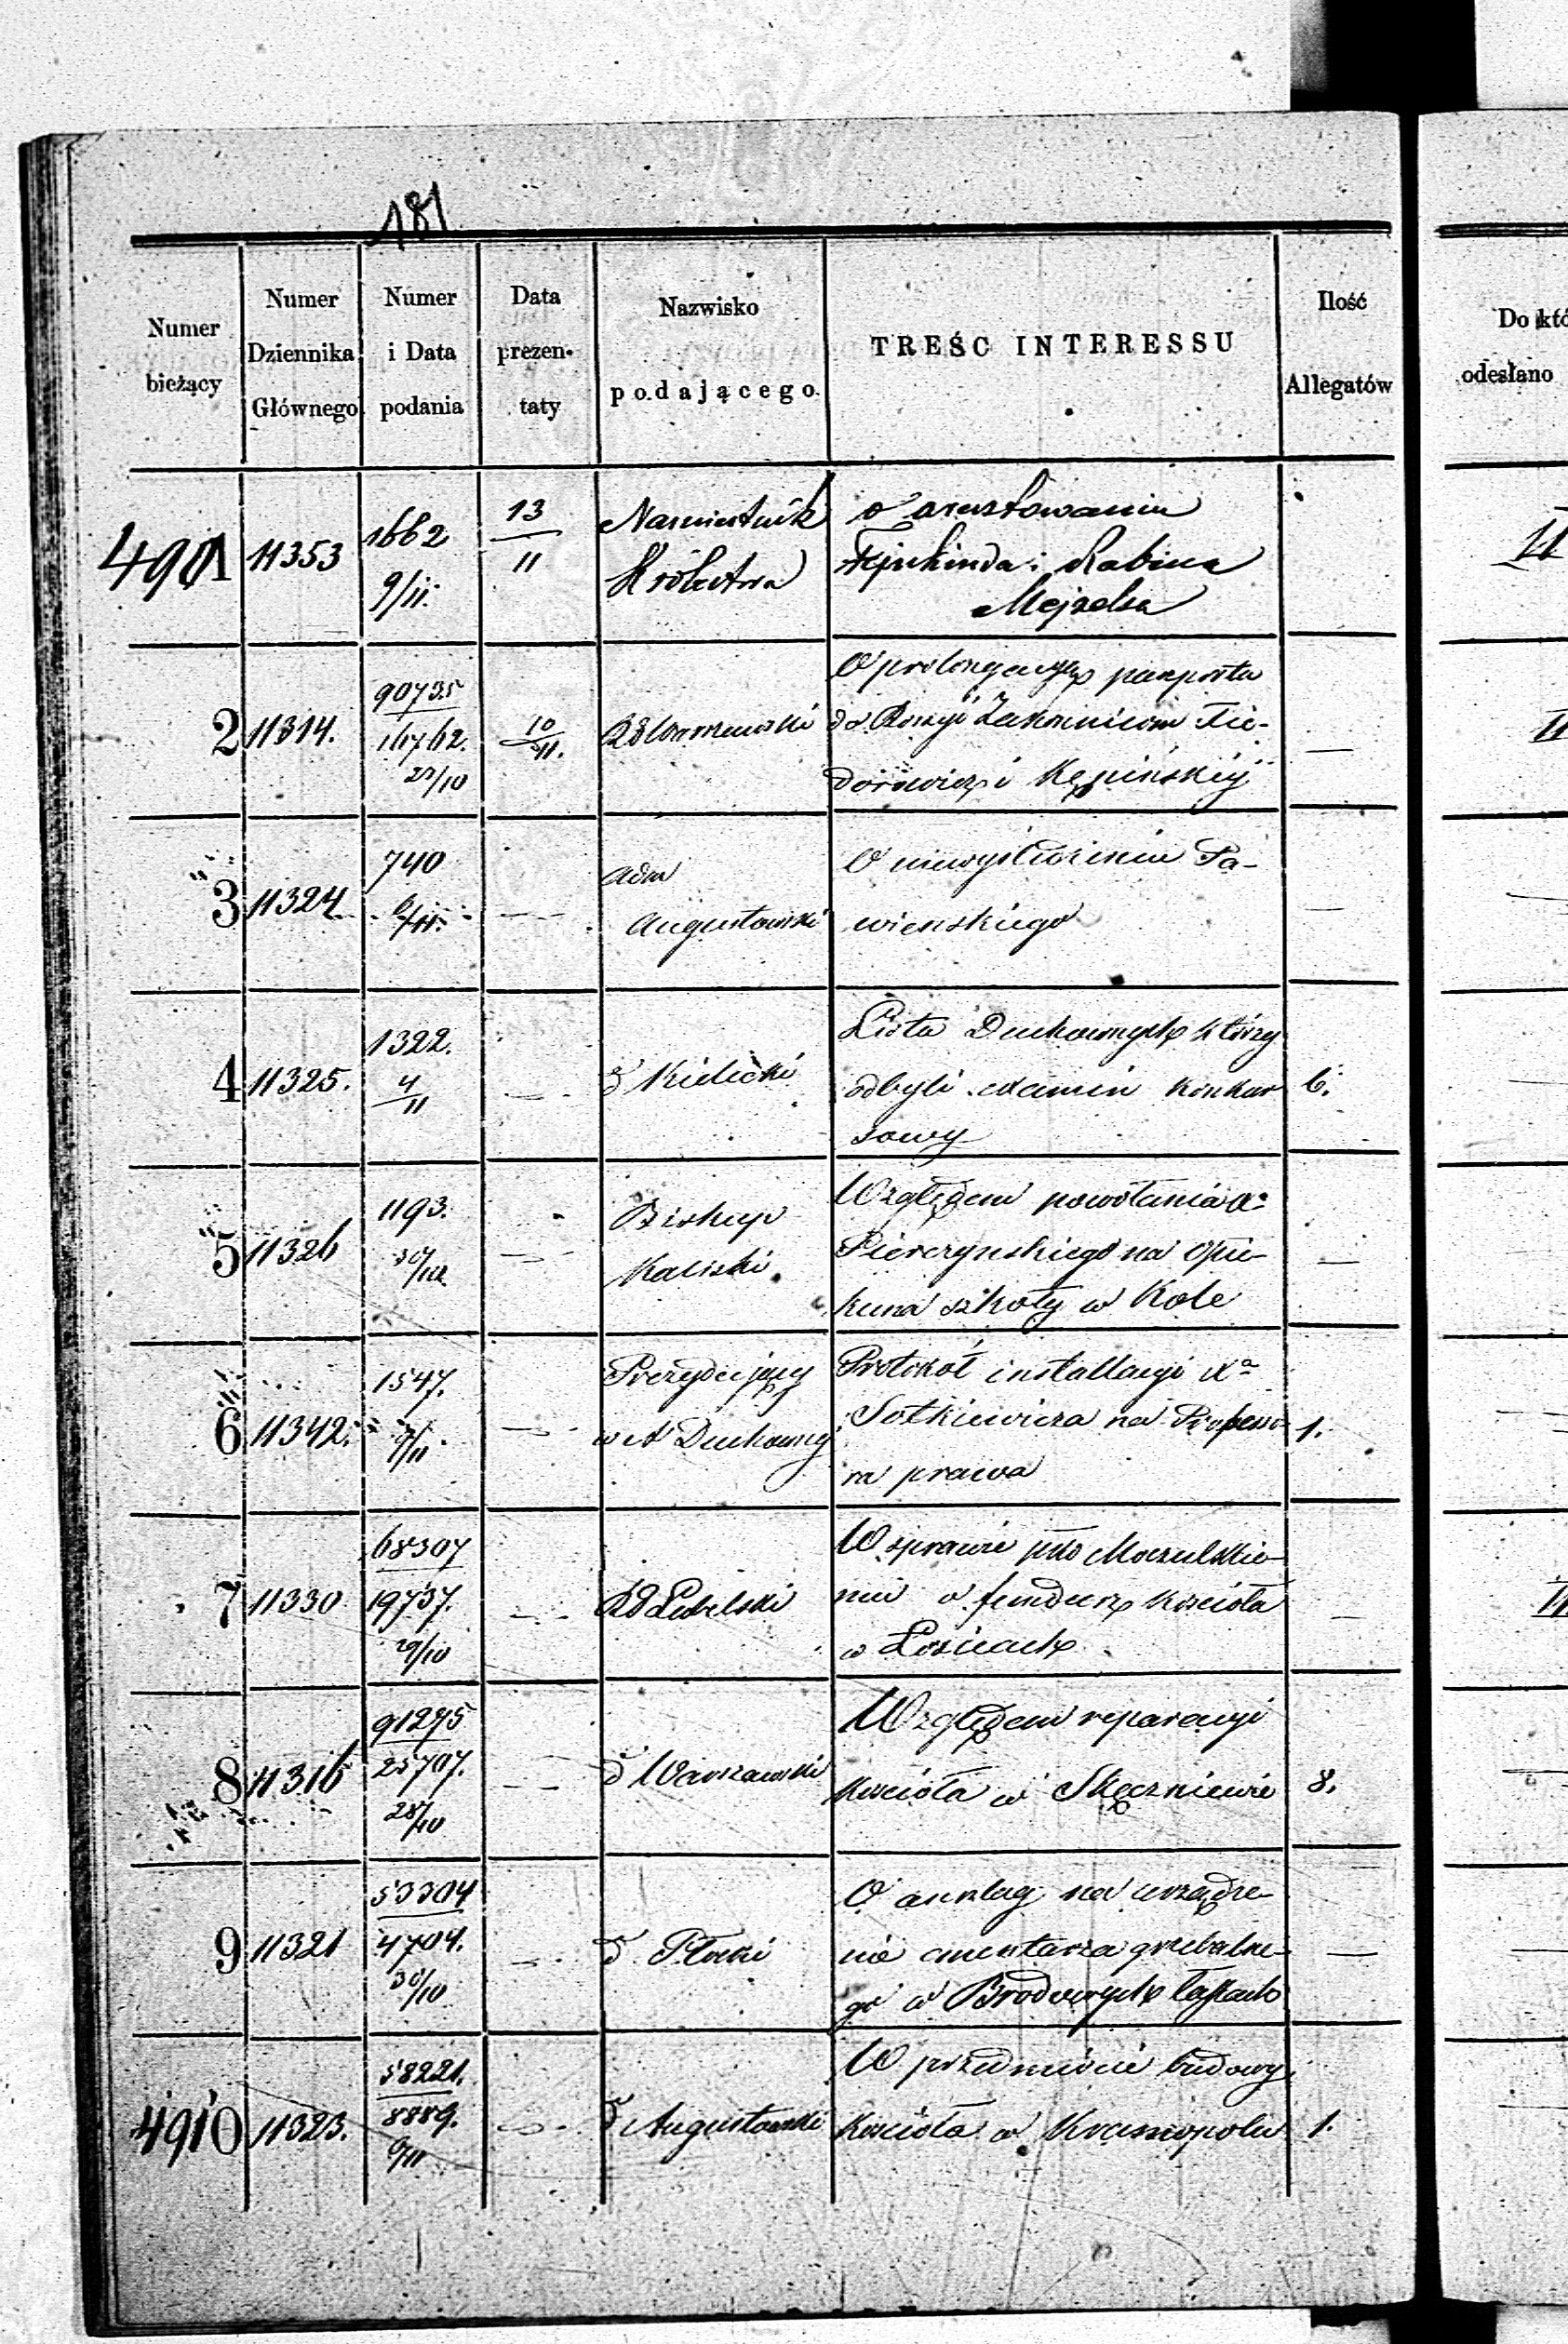 181
Numer bieżący
Numer Dziennika Głównego
Numer i Data podania
Data prezentaty
Nazwisko podającego
TREŚC INTERESSU
Ilość Allegatów
Do któ
odesłano
4901 11353 1662 9/11. 13/11
Namiestnik
Królestwa
o aresztowaniu
Fejnkinda i Rabina
Mejzelsa
2 11314. 90735 16762. 10/11.
RG Warszawski
O prolongacyę paszportu
do Rossyi Zakonnicom Fie-
dorowicz i Kępińskiej
—
3 11324 740 6/11.
Adm
Augustowski
O niewyśledzeniu Pa-
wienskiego
—
4 11325. 1322. 4/11
d° Kielecki
Lista Duchownych którzy
odbyli examin konkur
sowy
6.
5 11326 1193. 30/10
Biskup
Kaliski
Względem powołania Xa
Pierczynskiego na Opie-
kuna szkoły w Kole
—
6 11342. 1547. 7/11
Prezydujący
w A Duchownej
Protokół installacyi Xa
Sotkiewicza na Professo-
ra prawa
1.
7 11330 68307 19737. 29/10
RG Lubelski
W sprawie pko Moczulskie-
mu o fundusz kościoła
w Łosicach
—
8 11316 91275 25707. 28/10
d° Warszawski
Względem reparacyi
kościoła w Skęczniewie
8.
9 11321 53304 4704. 30/10
d° Płocki
O anszlag na urządze-
nie cmentarza grzebalne-
go w Brodowych Łąkach
—
4910 11323. 58221. 8889. 6/11
d° Augustowski
W przedmiocie budowy
kościoła w Krasnopolu
1.